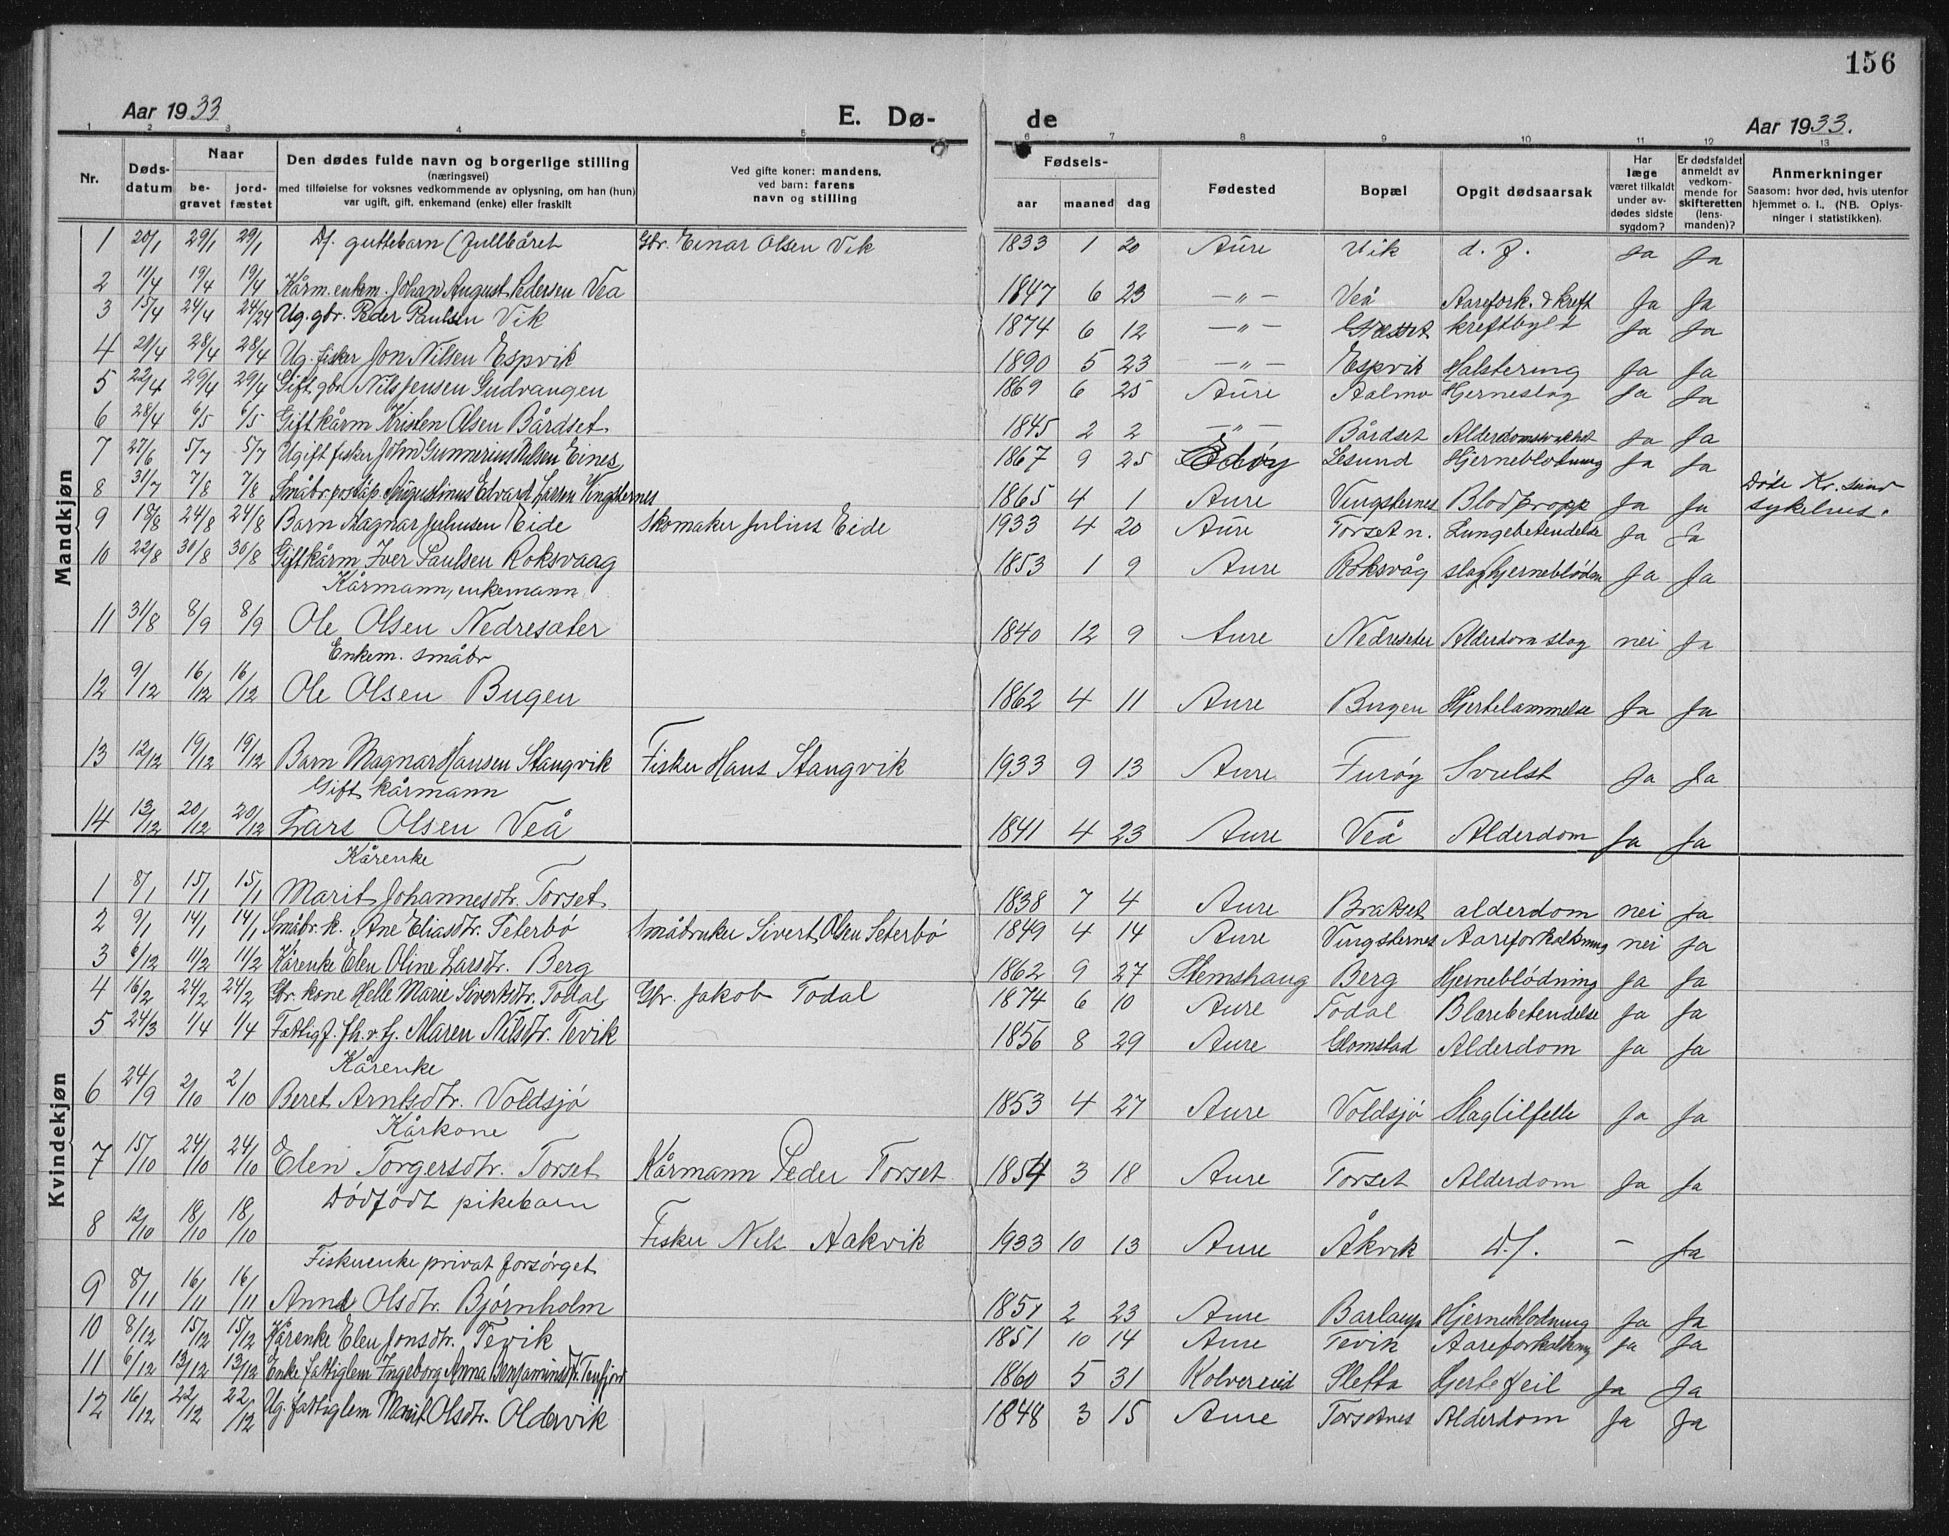 156
Aar 1933
E. Dø-
de
Aar 1933.
1 2 3 4 5 6 7 8 9 10 11 12 13
Nr.
Døds-datum
Naar
be-gravet
jord-fæstet
Den dødes fulde navn og borgerlige stilling
(næringsvei)
med tilføielse for voksnes vedkommende av oplysning, om han (hun)
var ugift, gift, enkemand (enke) eller fraskilt
Ved gifte koner: mandens,
ved barn: farens
navn og stilling
Fødsels-
aar maaned dag
Fødested
Bopæl
Opgit dødsaarsak
Har læge været tilkaldt under av-dødes sidste sygdom?
Er dødsfaldet anmeldt av vedkom-mende for skifteretten (lens-manden)?
Anmerkninger
Saasom: hvor død, hvis utenfor
hjemmet o. l., (NB. Oplys-
ninger i statistikken).
Mandkjøn
1 20/1 29/1 29/1 Df. guttebarn (fullbåret Gbr. Einar Olsen Vik 1833 1 20 Aure Vik d. f. Ja Ja
2 11/4 19/4 19/4 Kårm. enkem. Johan August Pedersen Vea 1847 6 23 —"— Veå Aarefork. & kreft Ja Ja
3 15/4 24/4 24/24 Ug. gbr. Peder Paulsen Vik 1874 6 12 —"— kreftbyld Ja Ja
4 21/4 28/4 28/4 Ug. fisker Jon Nilsen Espvik 1890 5 23 —"— Espvik Halstering Ja Ja
5 22/4 29/4 29/4 Gift gbr. Nils Jensen Gudvangen 1869 6 25 Aure Aalmo Hjerneslag Ja Ja
6 28/4 6/5 6/5 Gift kårm Kristen Olsen Bårdset 1845 2 2 —"— Bårdset Ja Ja
7 27/6 5/7 5/7 Ugift fisker John Gunnerius Nilsen Eines 1867 9 25 Edøy Lesund Hjerneblødning Ja Ja
8 31/7 7/8 7/8 Småbr. poståp. Augustinus Edvard Larsen Vingsternes 1865 4 1 Aure Vingsternes Blodpropp Ja Ja Døde Kr.sund
sykehus.
9 18/8 24/8 24/8 Barn Magnar Juliussen Eide Skomaker Julius Eide 1933 4 20 Aure Torset n. Lungebetendelse Ja Ja
10 22/8 30/8 30/8 Gift kårm Iver Paulsen Roksvaag 1853 1 9 Aure Roksvåg slag hjerneblødn Ja Ja
Kårmann, enkemann
11 31/8 8/9 8/9 Ole Olsen Nedresæter 1840 12 9 Aure Nedreseter Alderdom slag nei Ja
Enkem. småbr
12 9/12 16/12 16/12 Ole Olsen Bugen 1862 4 11 Aure Bugen Hjertelammelse Ja Ja
13 12/12 19/12 19/12 Barn Magnar Hansen Stangvik Fisker Hans Stangvik 1933 9 13 Aure Furøy Svulst Ja Ja
Gift kårmann
14 13/12 20/12 20/12 Lars Olsen Veå 1841 4 23 Aure Veå Alderdom Ja Ja
Kvindekjøn
Kårenke
1 8/1 15/1 15/1 Marit Johannesdtr. Torset 1838 7 4 Aure Bratset alderdom nei Ja
2 9/1 14/1 14/1 Småbr. k. Ane Eliasdtr. Seterbø Småbruker Sivert Olsen Seterbø 1849 4 14 Aure Vingsternes Aareforkalkning nei Ja
3 6/12 11/2 11/2 Kårenke Elen Oline Larsdtr. Berg 1862 9 27 Stemshaug Berg Hjerneblødning Ja Ja
4 16/2 24/2 24/2 Gbr. kone Helle Marie Sivertsdtr. Todal Gbr. Jakob Todal 1874 6 10 Aure Todal Blærebetendelse Ja Ja
5 24/3 1/4 1/4 Fattigf. fh. v. fj. Maren Nilsdtr. Tevik 1856 8 29 Aure Glomstad Alderdom Ja Ja
Kårenke
6 24/9 2/10 2/10 Beret Arntsdtr. Voldsjø 1853 4 27 Aure Voldsjø Slagtilfelle Ja Ja
Kårkone
7 15/10 24/10 24/10 Elen Torgersdtr. Torset Kårmann Peder Torset 1854 3 18 Aure Torset Alderdom Ja Ja
Dødfødt pikebarn
8 12/10 18/10 18/10 Fisker Nils Aakvik 1933 10 13 Aure Åkvik d.f. — Ja
Fiskerenke privat forsørget
9 8/11 16/11 16/11 Anne Olsdtr. Bjørnholm 1851 2 23 Aure Hjerneblødning Ja Ja
10 8/12 15/12 15/12 Kårenke Elen Jonsdtr. Tevik 1851 10 14 Aure Tevik Aareforkalkning Ja Ja
11 6/12 13/12 13/12 Enke fattiglem Ingeborg Anna Benjaminsdtr. 1860 5 31 Kolvereid Sletta Hjertefeil Ja Ja
12 16/12 22/12 22/12 Ug. fattiglem Marit Olsdtr. Oldervik 1848 3 15 Aure Torsetnes Alderdom Ja Ja